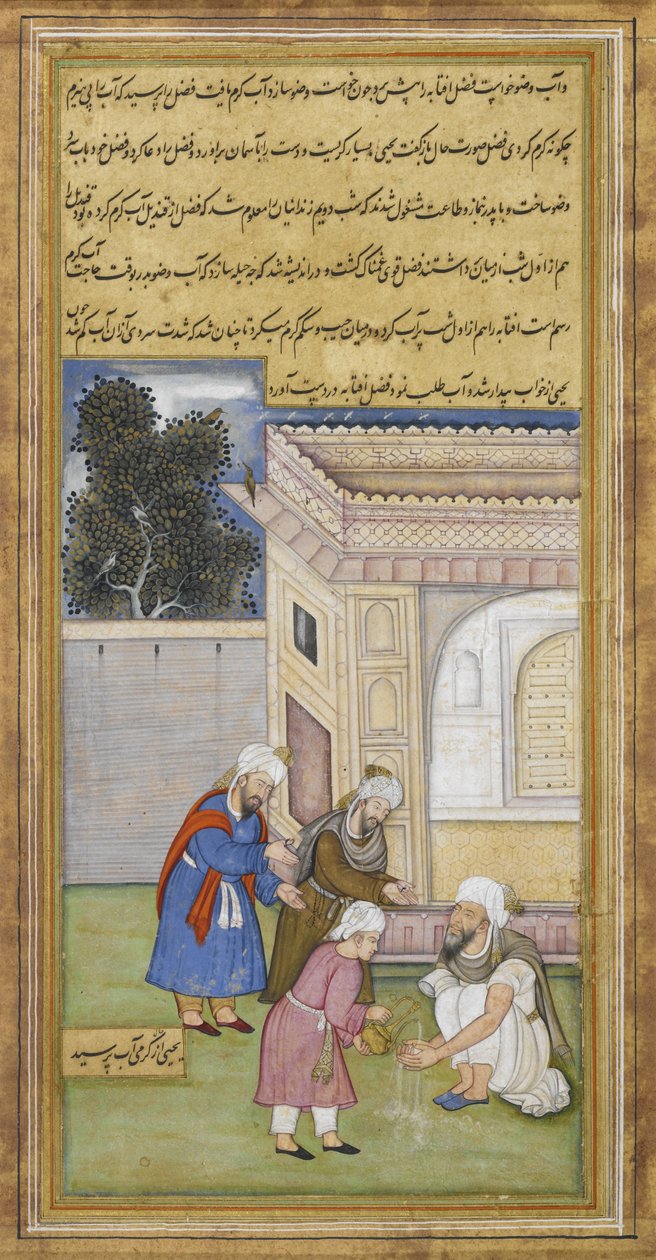 و آب وضو خواست فضل افتابه را پیش برد چون خواست وضو سازد آب کرم یافت فضل را پرسید که آب را بی هیزم
چکونه کرم کردی فضل صورت حال باز کفت یحیی بسیار کریست و دست را بآسمان براورد و فضل را دعا کرد و فضل خود باب سرد
وضو ساخت و با پدر نماز و طاعت مشغول شدند که شب دویم زندانیان را معلوم شد که فضل از قندیل آب کرم کرده بود قندیل را
هم از اول شب از میان برداشتند فضل قوی غمناک کشت و در اندیشه شد که چه حیله سازد که آب وضو پدر بوقت حاجت آب کرم
رسم است افتابه را هم از اول شب پر آب کرد و در میان جیب و شکم کرم میکرد تا چنان شد که شدت سردی از آن آب کم شد چون
یحیی از خواب بیدار شد و آب طلب نمود فضل افتابه در دست آورد
یحیی از کرمی آب پرسید